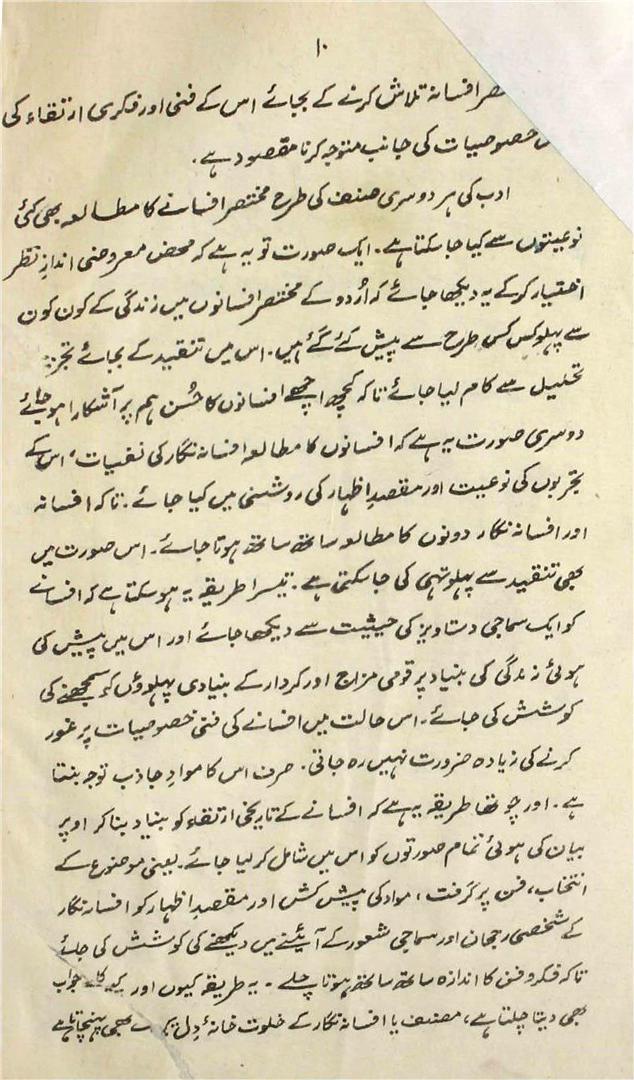 ۱۰
افسانہ تلاش کرنے کے بجائے اس کے فنی اور فکری ارتقاء کی
خصوصیات کی جانب متوجہ کرنا مقصود ہے۔
ادب کی ہر دوسری صنف کی طرح مختصر افسانے کا مطالعہ بھی کئی
نوعیتوں سے کیا جا سکتا ہے۔ ایک صورت تو یہ ہے کہ محض معروضی اندازِ نظر
اختیار کر کے یہ دیکھا جائے کہ اُردو کے مختصر افسانوں میں زندگی کے کون کون
سے پہلو کس کس طرح سے پیش کئے گئے ہیں۔ اس میں تنقید کے بجائے
تحلیل سے کام لیا جائے تاکہ کچھ اچھے افسانوں کا حُسن ہم پر آشکارا ہو جائے
دوسری صورت یہ ہے کہ افسانوں کا مطالعہ افسانہ نگار کی نفسیات، اس کے
تجربوں کی نوعیت اور مقصدِ اظہار کی روشنی میں کیا جائے۔ تاکہ افسانہ
اور افسانہ نگار دونوں کا مطالعہ ساتھ ساتھ ہوتا جائے۔ اس صورت میں
بھی تنقید سے پہلو تہی کی جا سکتی ہے۔ تیسرا طریقہ یہ ہو سکتا ہے کہ افسانے
کو ایک سماجی دستاویز کی حیثیت سے دیکھا جائے اور اس میں پیش کی
ہوئی زندگی کی بنیاد پر قومی مزاج اور کردار کے بنیادی پہلوؤں کو سمجھنے کی
کوشش کی جائے۔ اس حالت میں افسانے کی فنی خصوصیات پر غور
کرنے کی زیادہ ضرورت نہیں رہ جاتی۔ صرف اس کا مواد جاذب توجہ بنتا
ہے۔ اور چوتھا طریقہ یہ ہے کہ افسانے کے تاریخی ارتقاء کو بنیاد بنا کر اوپر
بیان کی ہوئی تمام صورتوں کو اس میں شامل کر لیا جائے۔ یعنی موضوع کے
انتخاب، فن پر گرفت، مواد کی پیش کش اور مقصدِ اظہار کو افسانہ نگار
کے شخصی رجحان اور سماجی شعور کے آئینے میں دیکھنے کی کوشش کی جائے
تاکہ فکر و فن کا اندازہ ساتھ ساتھ ہوتا چلے۔ یہ طریقہ کیوں اور جواب
بھی دیتا چلتا ہے، مصنف یا افسانہ نگار کے خلوت خانۂ دل بھی پہنچاتا ہے